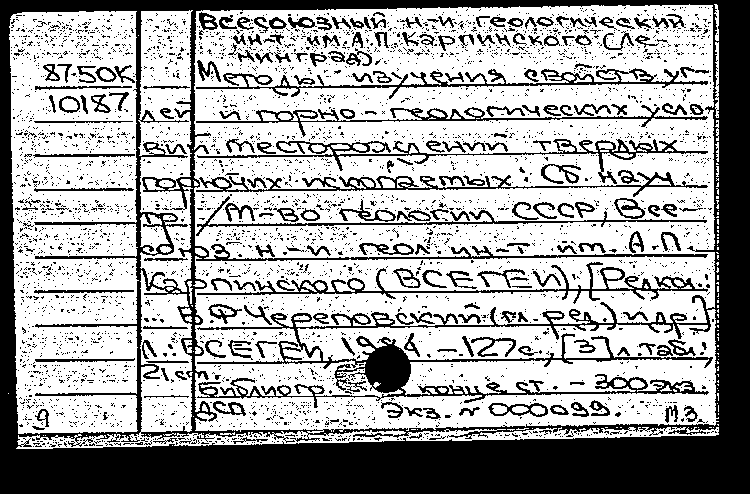 Всесоюзный н.-и. геологический
ин-т им. А.П. Карпинского (Ле-
нинград).
87-50К Методы изучения свойств уг-
10187 лей и горно-геологических усло-
вий месторождений твердых
горючих ископаемых: Сб. науч.
тр. / М-во геологии СССР, Все-
союз. н.-и. геол. ин-т им. А.П.
Карпинского (ВСЕГЕИ); [Редкол.:
... В.Ф. Череповский (гл. ред.) и др.]
Л.: ВСЕГЕИ, - 127 с., [3] л. табл.;
21 см.
Библиогр. в конце ст. - 300 экз.
ДСП. Экз. № 000099.
9 М.З.